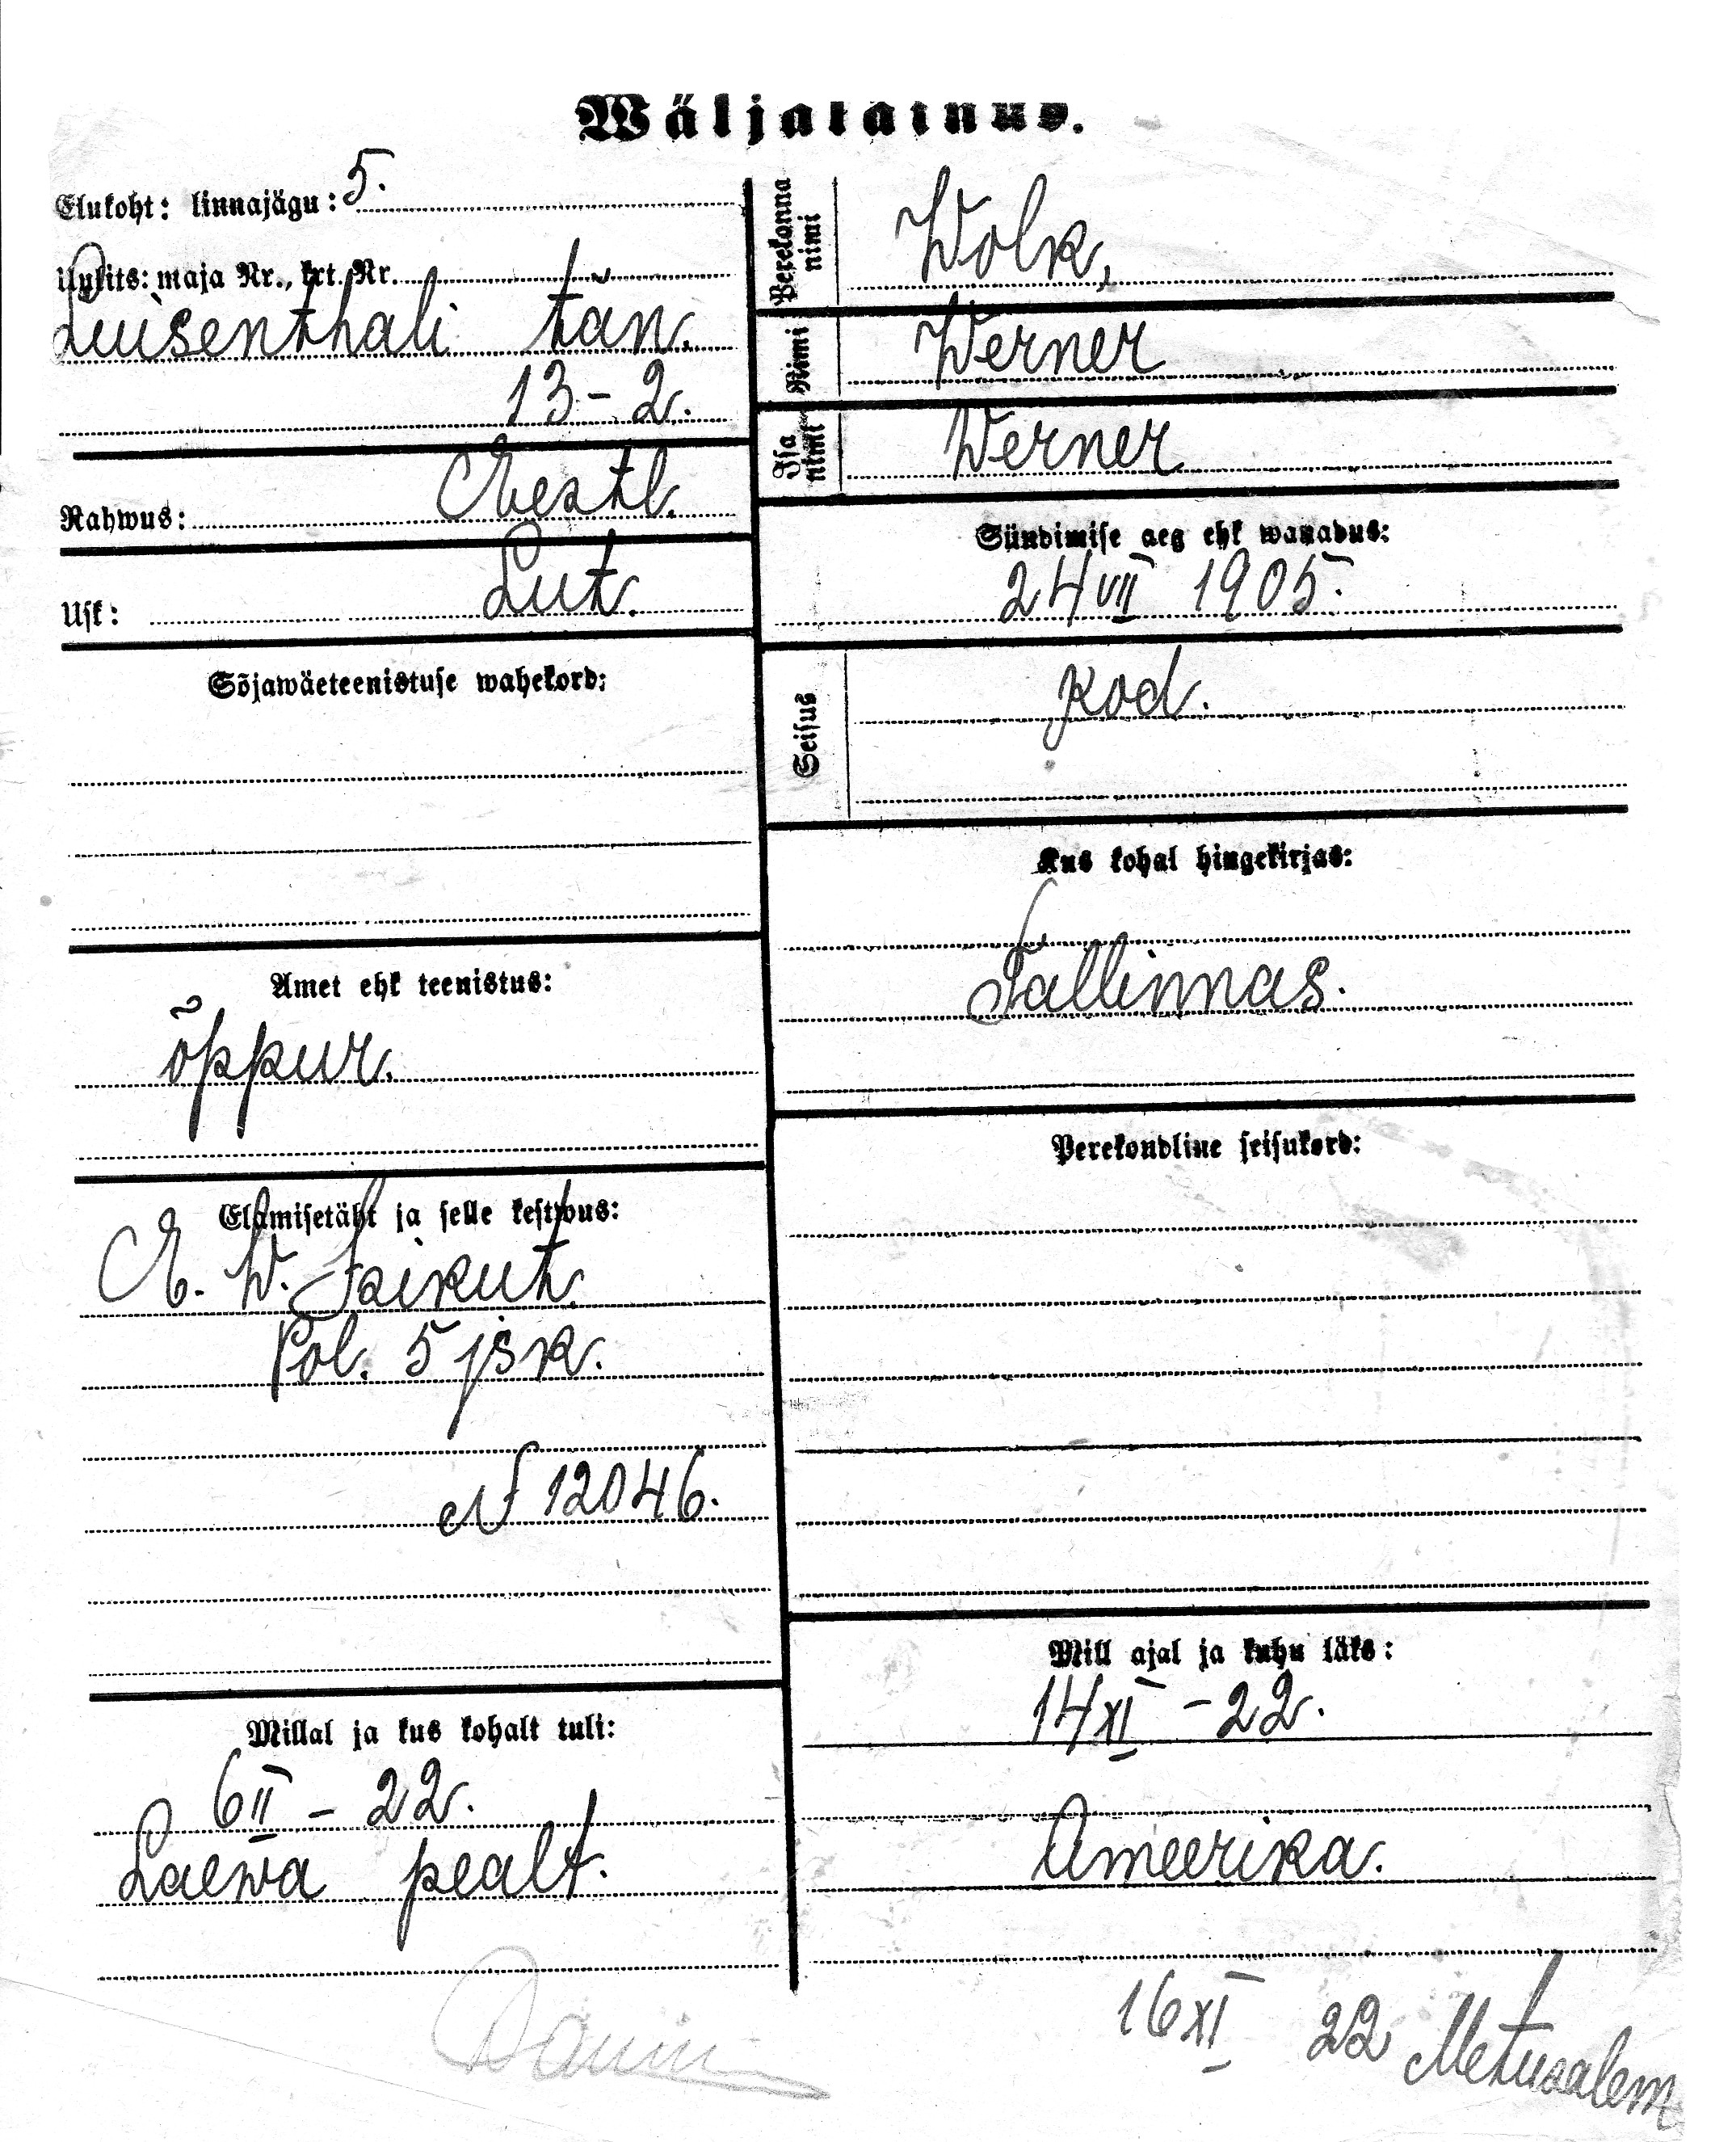 Wäljarainud.
Elukoht: linnajägu: 5.
Uulits: maja Nr., krt. Nr.
Luisenthali tän.
13 – 2.
Rahwus: Eestl.
Usk: Lut.
Sõjawäeteenistuse wahekord:
Amet ehk teenistus:
õppur.
Elamisetäht ja selle kestwus:
E. W. Isikut.
Pol. 5 jsk.
N 12046.
Millal ja kus kohalt tuli:
6 II – 22.
Laewa pealt.
Perekonna nimi
Wolk,
Nimi
Werner
Isa nimi
Werner
Sündimise aeg ehk wanadus:
24 VII 1905.
Seisus
kod.
Kus kohal hingekirjas:
Tallinnas.
Perekondline seisukord:
Mill ajal ja kuhu läks:
14 XI – 22.
Ameerika.
16 XI 22 Metusalem